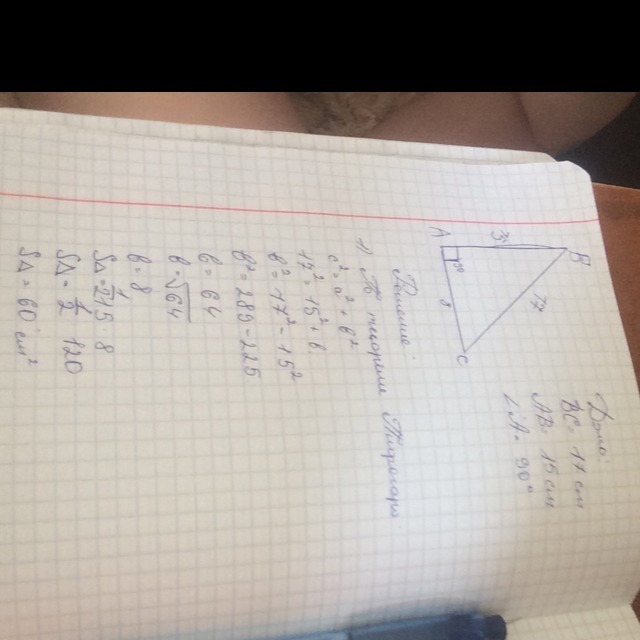 Дано:
BC = 17 см
AB = 15 см
∠A = 90°
A
B
C
8
17
Решение:
1) По теореме Пифагора
c² = a² + b²
17² = 15² + b
b² = 17² - 15²
b² = 289 - 225
b = 64
b = √64
b = 8
S△ = 1/2 15 · 8
S△ = 1/2 · 120
S△ = 60 см²